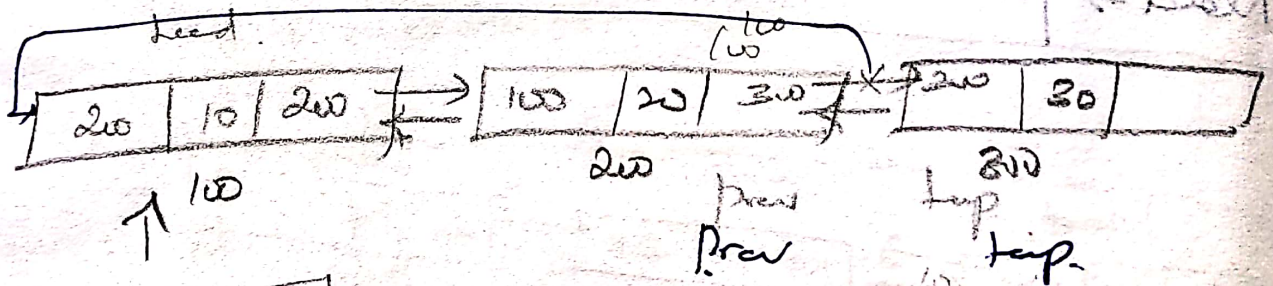 head.
100
200 10 200 100 20 300 200 30
100 200 300
prev temp
Prev temp.